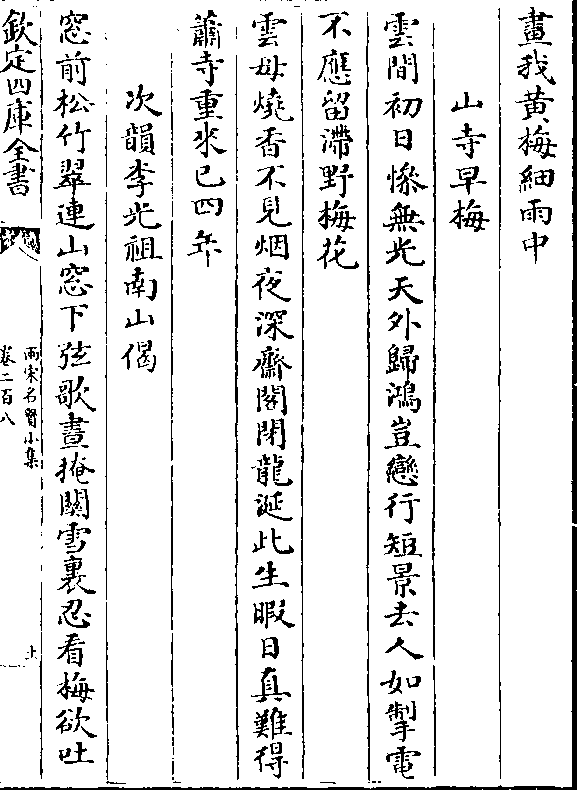 畫我黃梅細雨中
山寺早梅
雲間初日慘無光天外歸鴻豈戀行短景去人如掣電
不應留滯野梅花
雲母燒香不見烟夜深齋閣閉龍涎此生暇日真難得
蕭寺重來已四年
次韻李光祖南山偈
窓前松竹翠連山窓下弦歌晝掩關雪裏忍看梅欲吐
欽定四庫全書
兩宋名賢小集
卷二百八